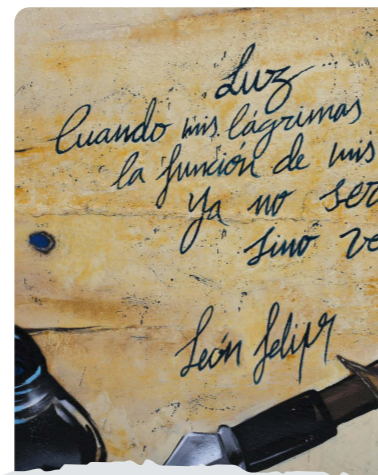 Luz...
Cuando mis lágrimas
la función de mis
ya no ser
sino ve
León Felipe